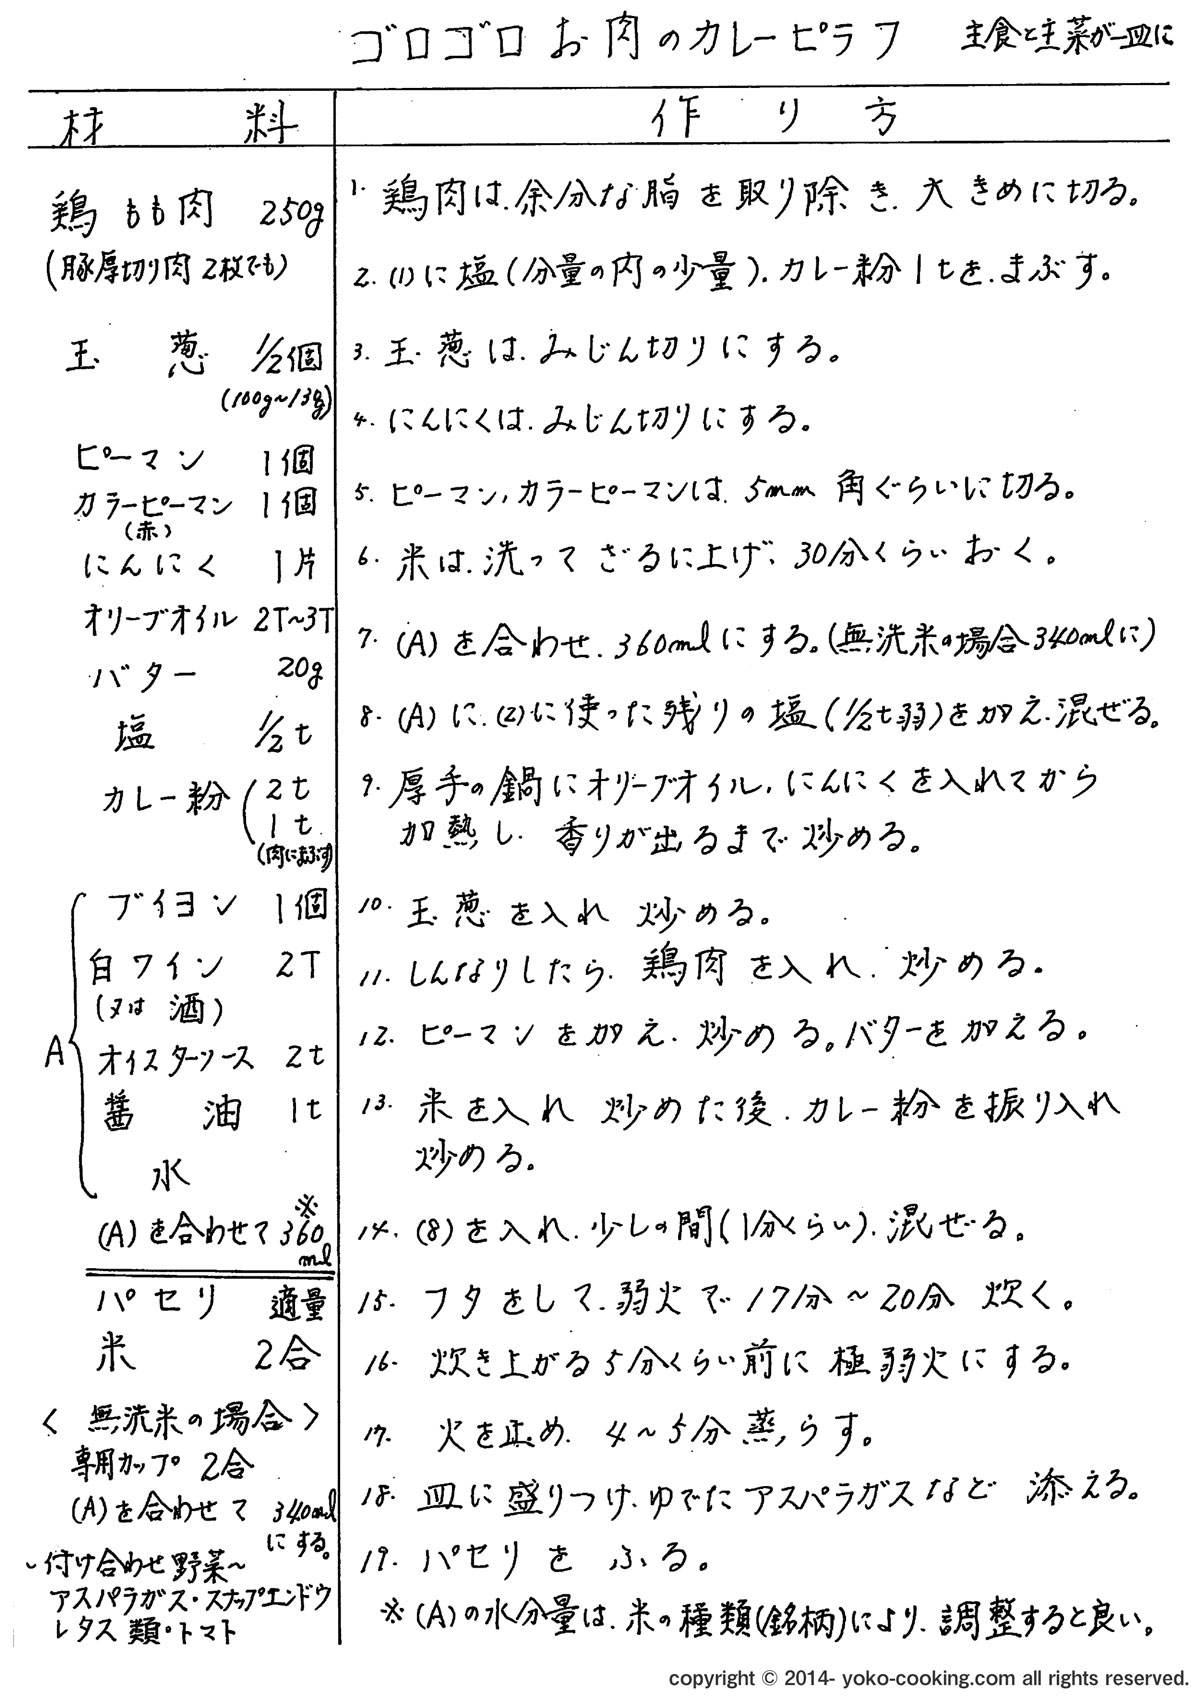 ゴロゴロお肉のカレーピラフ 主食と主菜が一皿に
材料
鶏もも肉 250g
(豚厚切り肉2枚でも)
玉葱 1/2個
(100g~13g)
ピーマン 1個
カラーピーマン 1個
(赤)
にんにく 1片
オリーブオイル 2T~3T
バター 20g
塩 1/2t
カレー粉 2t
1t
(肉にまぶす)
A
ブイヨン 1個
白ワイン 2T
(又は 酒)
オイスターソース 2t
醤油 1t
水
※
(A)を合わせて360
ml
パセリ 適量
米 2合
<無洗米の場合>
専用カップ 2合
(A)を合わせて 340ml
にする。
~付け合わせ野菜~
アスパラガス・スナップエンドウ
レタス類・トマト
作り方
1. 鶏肉は、余分な脂を取り除き、大きめに切る。
2. (1)に塩(分量の内の少量)、カレー粉1tを、まぶす。
3. 玉葱は、みじん切りにする。
4. にんにくは、みじん切りにする。
5. ピーマン、カラーピーマンは、5mm角ぐらいに切る。
6. 米は、洗ってざるに上げ、30分くらいおく。
7. (A)を合わせ、360mlにする。(無洗米の場合340mlに)
8. (A)に、(2)に使った残りの塩(1/2t弱)を加え、混ぜる。
9. 厚手の鍋にオリーブオイル、にんにくを入れてから
加熱し、香りが出るまで炒める。
10. 玉葱を入れ 炒める。
11. しんなりしたら、鶏肉を入れ、炒める。
12. ピーマンを加え、炒める。バターを加える。
13. 米を入れ 炒めた後、カレー粉を振り入れ
炒める。
14. (8)を入れ、少しの間(1分くらい)、混ぜる。
15. フタをして、弱火で17分~20分 炊く。
16. 炊き上がる5分くらい前に極弱火にする。
17. 火を止め、4~5分蒸らす。
18. 皿に盛りつけ、ゆでたアスパラガスなど 添える。
19. パセリをふる。
※(A)の水分量は、米の種類(銘柄)により、調整すると良い。
copyright © 2014- yoko-cooking.com all rights reserved.